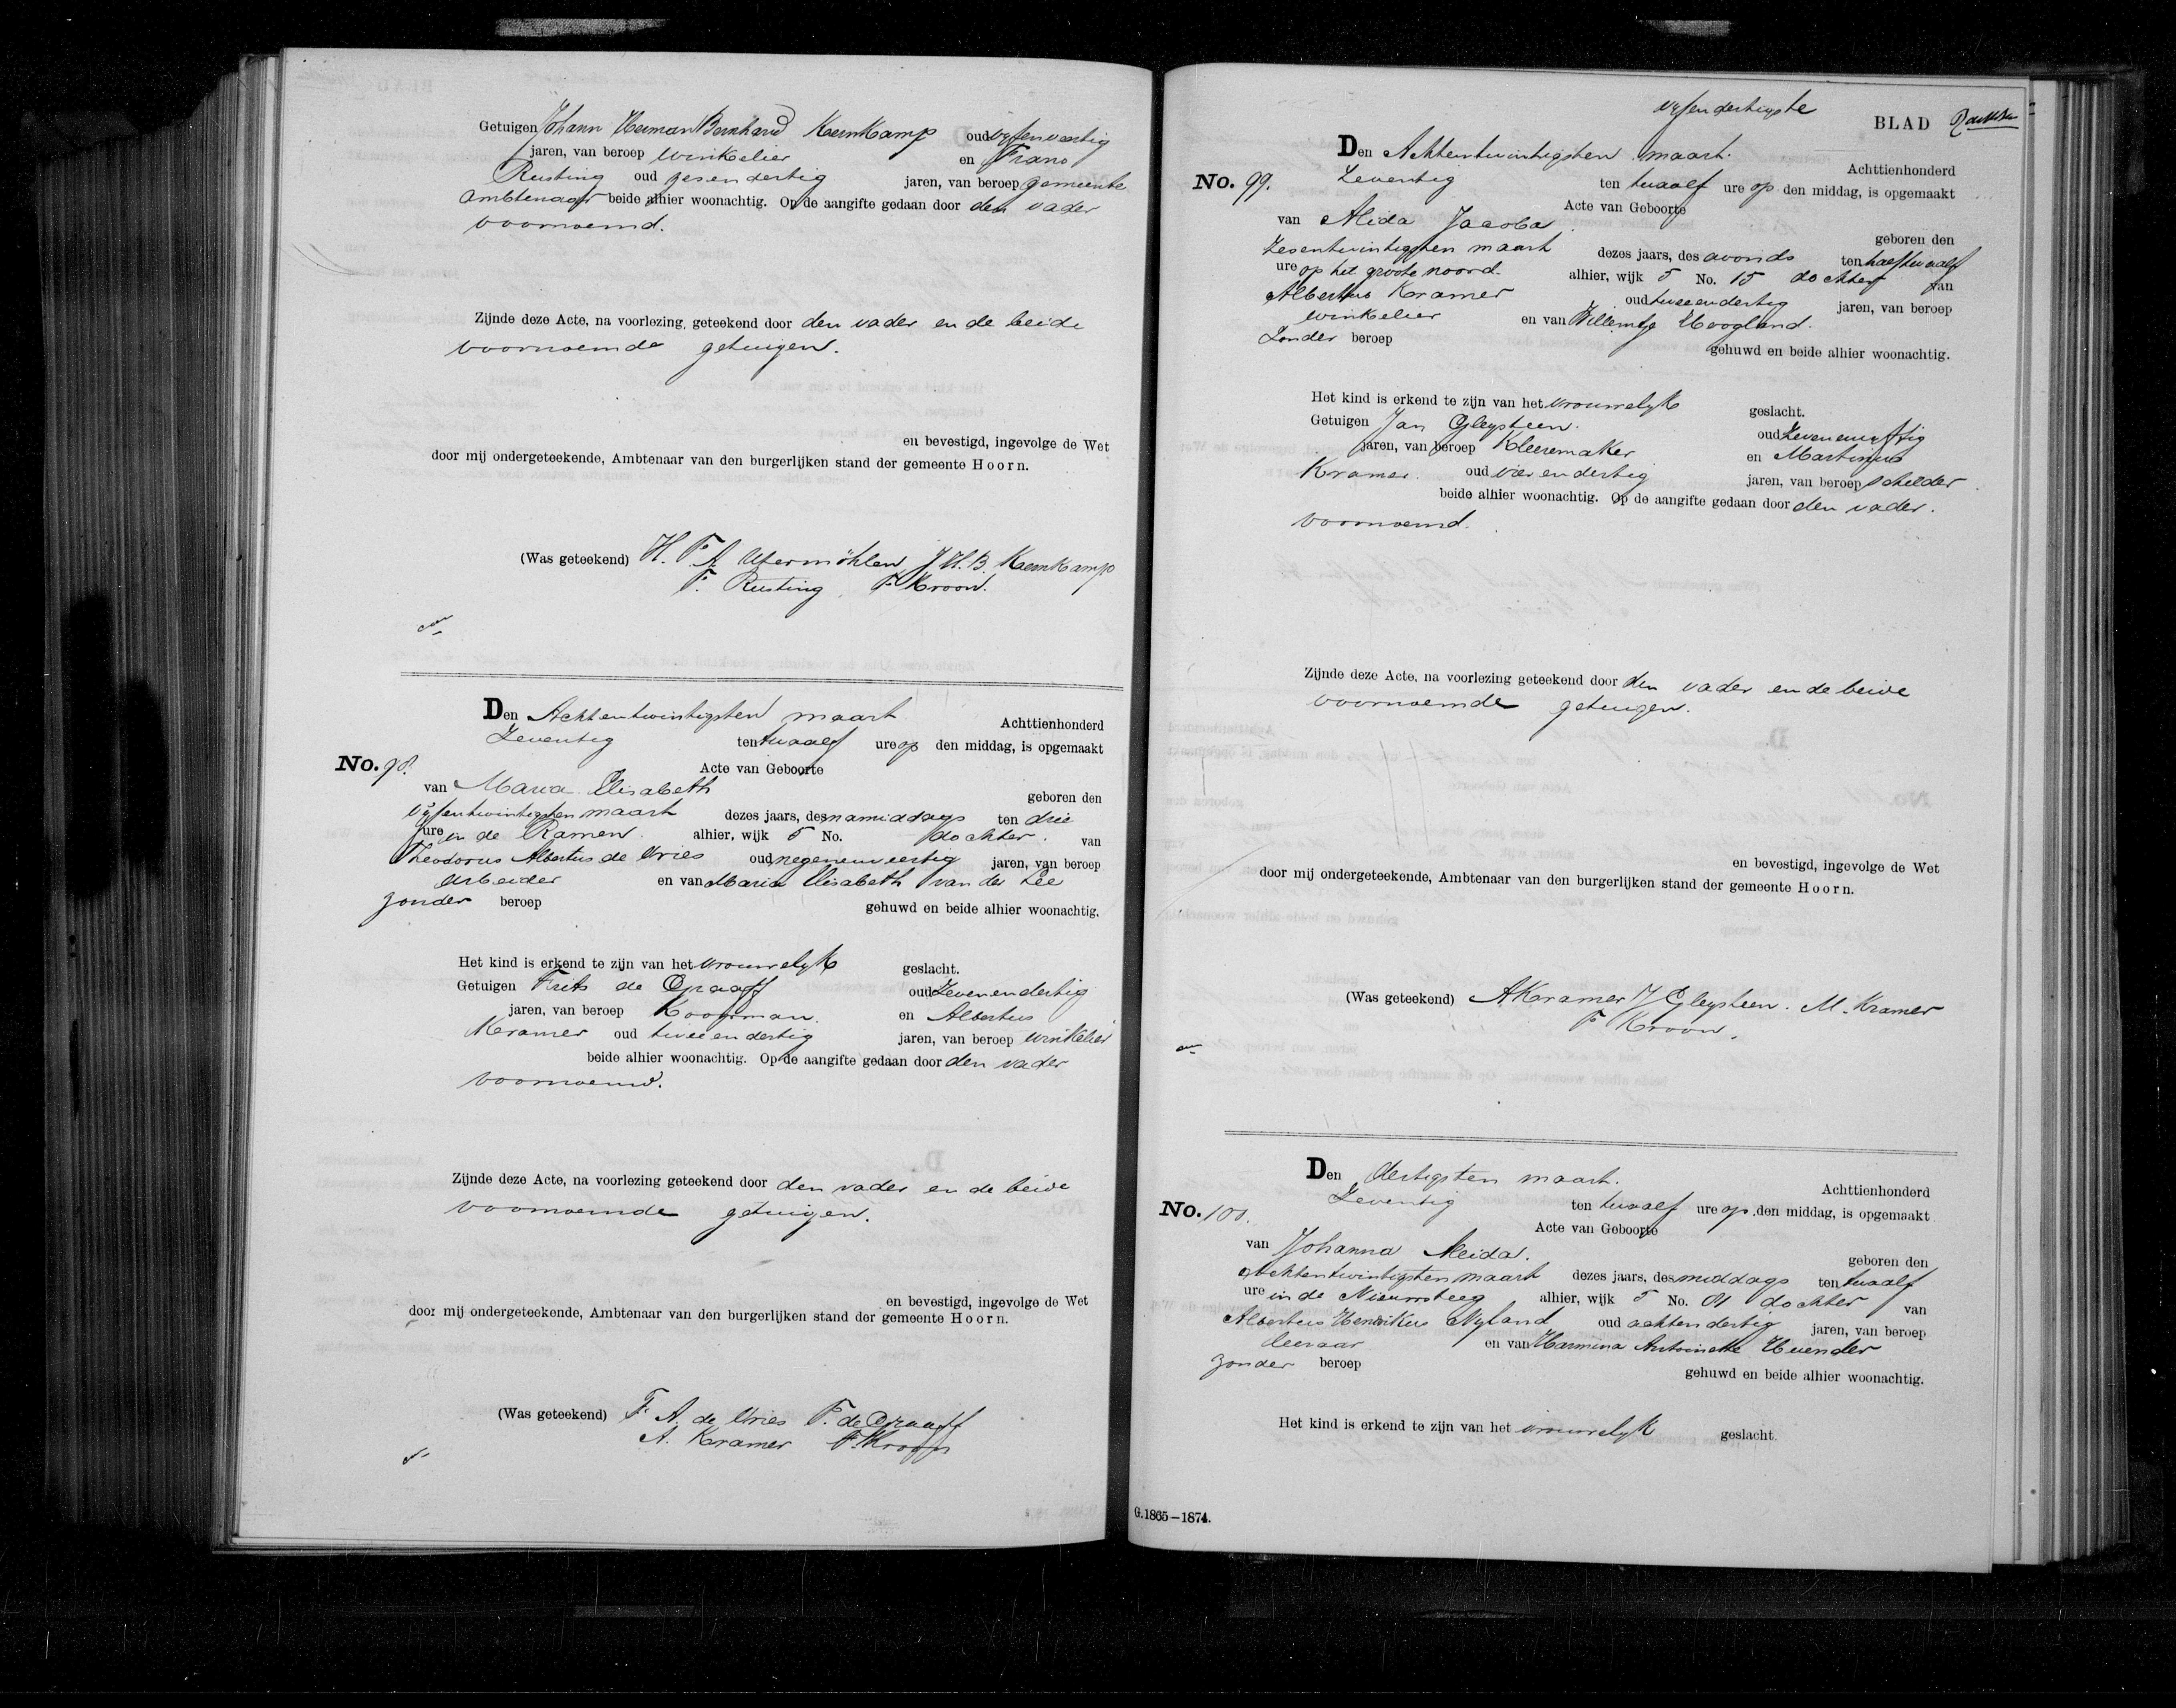 Getuigen Johann Herman Bernhard Kernkamp oud vyfenveertig
jaren, van beroep winkelier en Frans
Rusting oud zesendertig jaren, van beroep gemeente
ambtenaar beide alhier woonachtig. Op de aangifte gedaan door den vader
voornoemd.
Zijnde deze Acte, na voorlezing, geteekend door den vader en de beide
voornoemde getuigen.
en bevestigd, ingevolge de Wet
door mij ondergeteekende, Ambtenaar van den burgerlijken stand der gemeente Hoorn.
(Was geteekend) H. F. A. Utermöhlen J. H. B. Kernkamp
F. Rusting F. Kroon.
Den Achtentwintigsten maart Achttienhonderd
Zeventig ten twaalf ure op den middag, is opgemaakt
No. 98. Acte van Geboorte
van Maria Elisabeth geboren den
vyfentwintigsten maart dezes jaars, des namiddags ten drie
ure in de Ramen. alhier, wijk 5 No. dochter. van
Theodorus Albertus de Vries oud negenenveertig jaren, van beroep
Arbeider en van Maria Elisabeth van der Lee
zonder beroep gehuwd en beide alhier woonachtig.
Het kind is erkend te zijn van het vrouwelyk geslacht.
Getuigen Frits de Graaff oud Zevenendertig
jaren, van beroep Koopman. en Albertus
Kramer oud tweeendertig jaren, van beroep winkelier
beide alhier woonachtig. Op de aangifte gedaan door den vader
voornoemd.
Zijnde deze Acte, na voorlezing geteekend door den vader en de beide
voornoemde getuigen.
en bevestigd, ingevolge de Wet
door mij ondergeteekende, Ambtenaar van den burgerlijken stand der gemeente Hoorn.
(Was geteekend) F. A. de Vries F. de Graaff
A. Kramer F. Kroon
vyfendertigste BLAD
Den Achtentwintigsten maart. Achttienhonderd
No. 99. Zeventig ten twaalf ure op den middag, is opgemaakt
Acte van Geboorte
van Alida Jacoba geboren den
Zesentwintigsten maart dezes jaars, des avonds ten half twaalf
ure op het groote noord. alhier, wijk 5 No. 15 dochter van
Albertus Kramer oud tweeendertig jaren, van beroep
winkelier en van Willemtje Hoogland.
Zonder beroep gehuwd en beide alhier woonachtig.
Het kind is erkend te zijn van het vrouwelyk geslacht.
Getuigen Jan Gleysteen. oud Zevenenvyftig
jaren, van beroep Kleeremaker en Martinus
Kramer. oud vierendertig jaren, van beroep schilder
beide alhier woonachtig. Op de aangifte gedaan door den vader.
voornoemd.
Zijnde deze Acte, na voorlezing geteekend door den vader en de beide
voornoemde getuigen.
en bevestigd, ingevolge de Wet
door mij ondergeteekende, Ambtenaar van den burgerlijken stand der gemeente Hoorn.
(Was geteekend) A Kramer J Gleysteen. M. Kramer
F Kroon.
Den dertigsten maart. Achttienhonderd
Zeventig ten twaalf ure op den middag, is opgemaakt
No. 100. Acte van Geboorte
van Johanna Aleida. geboren den
achtentwintigsten maart dezes jaars, des middags ten twaalf
ure in de Nieuwsteeg alhier, wijk 5 No. 01 dochter van
Albertus Henrikus Nyland oud achtendertig jaren, van beroep
leeraar en van Harmina Antoinette Huender
zonder beroep gehuwd en beide alhier woonachtig.
Het kind is erkend te zijn van het vrouwelyk geslacht.
G. 1865—1874.